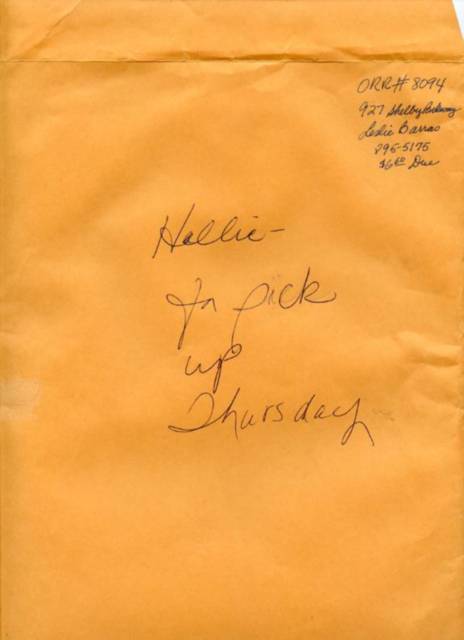 ORR# 8094
927 Shelby Parkway
Leslie Barras
895-5175
Due
Hallie-
For pick
up
Thursday